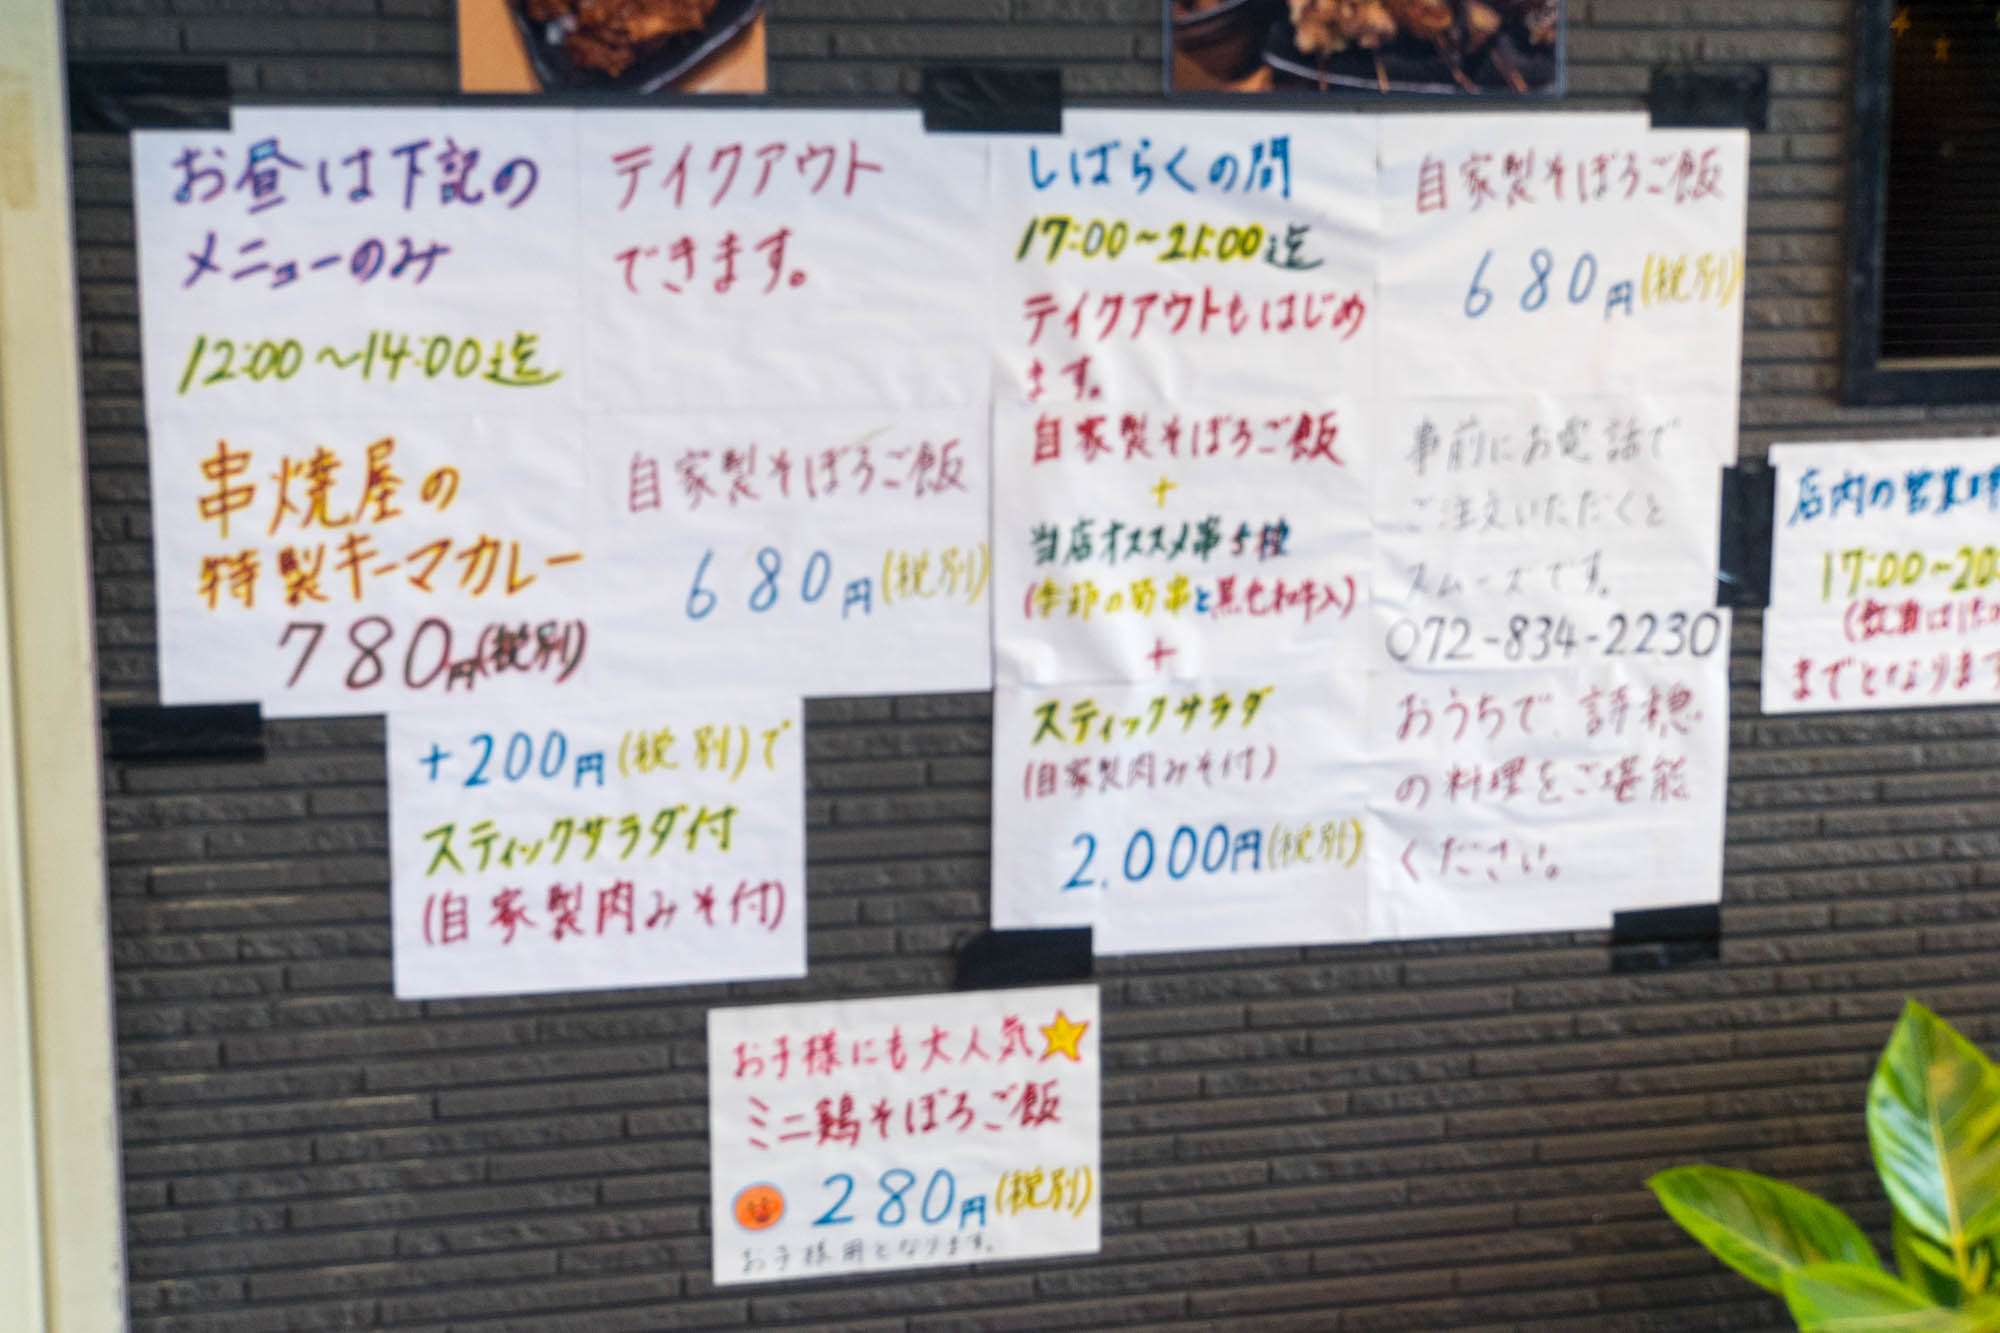 お昼は下記の
メニューのみ
12:00〜14:00迄
テイクアウト
できます。
串焼屋の
特製キーマカレー
780円(税別)
自家製そぼろご飯
680円(税別)
+200円(税別)で
スティックサラダ付
(自家製肉みそ付)
しばらくの間
17:00〜21:00迄
テイクアウトもはじめ
ます。
自家製そぼろご飯
+
当店オススメ串5種
(季節の野菜串と黒毛和牛入)
+
スティックサラダ
(自家製肉みそ付)
2,000円(税別)
自家製そぼろご飯
680円(税別)
事前にお電話で
ご注文いただくと
スムーズです。
072-834-2230
おうちで、評穂
の料理をご堪能
ください。
お子様にも大人気
ミニ鶏そぼろご飯
280円(税別)
お子様用となります。
店内の営業時
17:00〜20:
までとなります